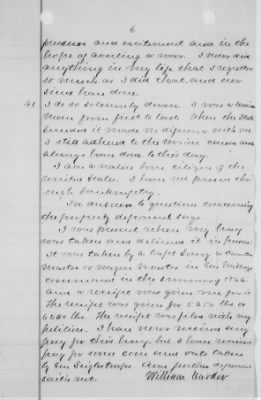 6
pressure and excitement and in the
hope of avoiding a war. I never did
anything in my life that I regretted
so much as I did that, and ever
since have done
48 I do so solemnly swear. I was a Union
man from first to last. When the State
seceded it made no difference with me
I still adhered to the Union cause and
always have done to this day.
I am a native born citizen of the
United States. I have not passed th
rough bankruptcy.
In answer to question concerning
the property deponent says
I was present when my hay
was taken and delivered it in person.
It was taken by a Capt
Master or Wagon Master in Gen
command in the summer of 1862
and a receipt was given me for it
The receipt was given for 5250 lbs or
lbs. The receipt was filed with my
petition. I have never received any
pay for this hay, but I have received
pay for some corn and oats taken
by Gen
saith not.
William